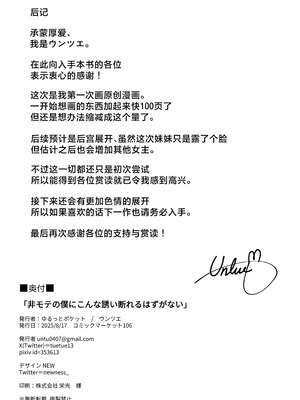 后记
承蒙厚爱、
我是ウンツエ。
在此向入手本书的各位
表示衷心的感谢！
这次是我第一次画原创漫画。
一开始想画的东西加起来快100页了
但还是想办法缩减成这个量了。
后续预计是后宫展开、虽然这次妹妹只是露了个脸
但估计之后也会增加其他女主。
不过这一切都还只是初次尝试
所以能得到各位赏读就已令我感到高兴。
接下来还会有更加色情的展开
所以如果喜欢的话下一作也请务必入手。
最后再次感谢各位的支持与赏读！
Untue
■奥付■
「非モテの僕にこんな誘い断れるはずがない」
発行者：ゆるっとポケット / ウンツエ
発行日：2025/8/17 コミックマーケット106
発行者 untu0407@gmail.com
X(Twitter)＝tuetue13
pixiv id=353613
デザイン NEW
Twitter＝newness_
印刷：株式会社 栄光 様
※無断転載、複製禁止